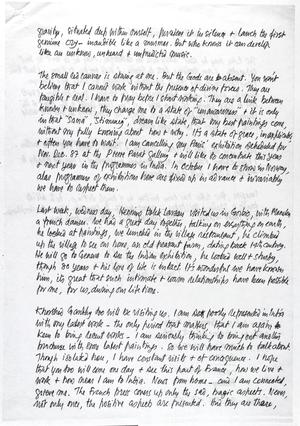 gravity, situated deep within oneself, perceive it in silence & launch the first
genuine cry – inaudible like a murmur. But who knows it can develop
like an unknown, unheard & unpredicted music.
The small size canvas is staring at me. But the Gods are absent. You won't
believe that I cannot work without the presence of divine forces. They are
tangible & real. I have to pray before I start working. They are a link between
known & unknown, they charge me to a state of "unawareness" & it is only
in that "Sama", dream like state that my best paintings come,
without my fully knowing about how & why. It's a state of grace, inexplicable
& often you have to wait. I am cancelling my Paris' exhibition scheduled for
Nov. Dec. 87 at the Pierre Parat Gallery & will like to concentrate this year
& next year in the programmes in India. In October I have to show in Norway,
alas programmes of exhibitions have are fixed up in advance & invariably
we have to respect them.
Last week, Wednesday, visited us in Gorbio, with
a french dancer. We had a great day together, talking on everything on earth,
he looked at paintings, we lunched in the village restaurant, he climbed
up the village to see our home, an old peasant farm, dating back 14th century.
He will go to Geneva to see the Indian exhibition, he looked well & sturdy,
though 80 years & his love of life is intact. It's wonderful we have known
him, its great that such intimate & warm relationships have been possible
for me, for us, during our life time.
Khorshed Gandhy too will be visiting us, I am so poorly represented in India
with my latest work – the only period that matters, that I am again to
keen to bring recent works – I am seriously thinking to bring out another
brochure with my latest paintings – so we will have much to talk about.
Though isolated here, I have constant visits & of consequence. I hope
that you too will come one day & see this part of France, how we live &
work & how near I am to India. News from home – and I am connected,
grieve me. The french press covers up only the sad, tragic aspects. Never,
not only ever, the positive aspects are presented. And they are there,